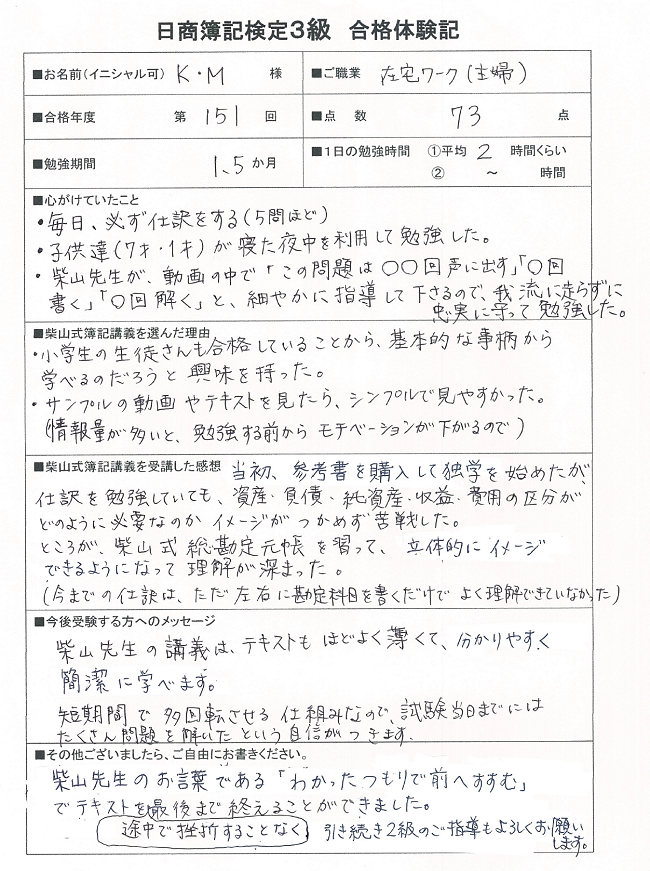 日商簿記検定3級 合格体験記
■お名前(イニシャル可) K・M 様
■ご職業 在宅ワーク(主婦)
■合格年度 第 151 回
■点 数 73 点
■勉強期間 1.5 か月
■1日の勉強時間 ①平均 2 時間くらい
② ~ 時間
■心がけていたこと
・毎日、必ず仕訳をする(5問ほど)
・子供達(7才・1才)が寝た夜中を利用して勉強した。
・柴山先生が、動画の中で「この問題は〇〇回声に出す」「〇回
書く」「〇回解く」と、細やかに指導して下さるので、我流に走らずに
忠実に守って勉強した。
■柴山式簿記講義を選んだ理由
・小学生の生徒さんも合格していることから、基本的な事柄から
学べるのだろうと興味を持った。
・サンプルの動画やテキストを見たら、シンプルで見やすかった。
(情報量が多いと、勉強する前からモチベーションが下がるので)
■柴山式簿記講義を受講した感想 当初、参考書を購入して独学を始めたが、
仕訳を勉強していても、資産・負債・純資産・収益・費用の区分が
どのように必要なのかイメージがつかめず苦戦した。
ところが、柴山式総勘定元帳を習って、立体的にイメージ
できるようになって理解が深まった。
(今までの仕訳は、ただ左右に勘定科目を書くだけでよく理解できていなかった)
■今後受験する方へのメッセージ
柴山先生の講義は、テキストもほどよく薄くて、分かりやすく
簡潔に学べます。
短期間で多回転させる仕組みなので、試験当日までには
たくさん問題を解いたという自信がつきます.
■その他ございましたら、ご自由にお書きください。
柴山先生のお言葉である「わかったつもりで前へすすむ」
でテキストを最後まで終えることができました。
途中で挫折することなく 引き続き2級のご指導もよろしくお願い
します。